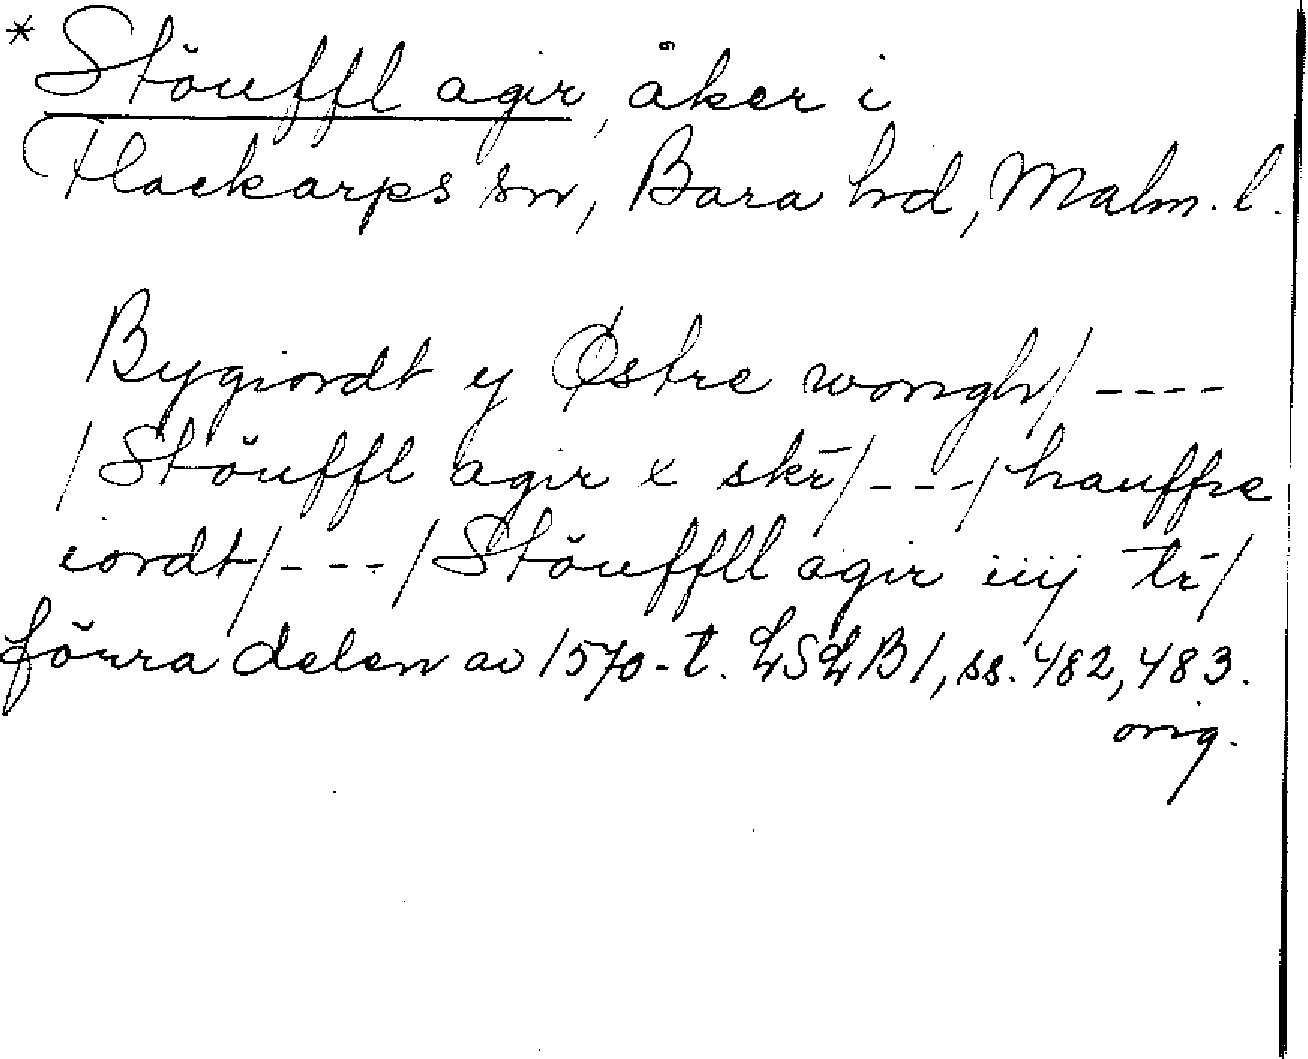 * Stöuffl agir, åker i
Flackarps sn, Bara hd, Malm. l.
Bygiordt y Østre wongh/----
/Stöuffl agir x skr̄/---/hauffre
iordt/---/Stöuffll agir iiij tr̄/
förra delen av 1570-t. LSLB1, ss. 482, 483.
orig.